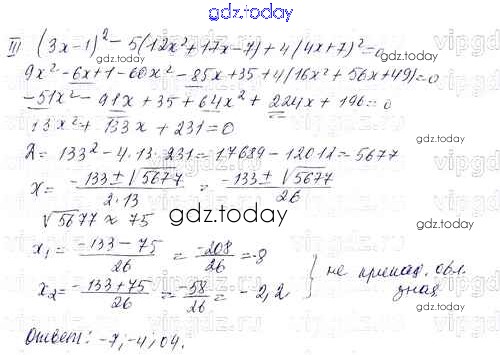 gdz.today
III (3x-1)² - 5(12x²+17x-7)+4(4x+7)²=0
9x²-6x+1-60x²-85x+35+4(16x²+56x+49)=0
-51x²-91x+35+64x²+224x+196=0
13x²+133x+231=0
gdz.today
D=133²-4·13·231=17689-12012=5677
x= -133±√5677 / 2·13 = -133±√5677 / 26
√5677 ≈ 75
gdz.today
x₁= -133-75 / 26 = -208 / 26 = -8
x₂= -133+75 / 26 = -58 / 26 = -2,2 } не принад. обл. знач
gdz.today
Ответ: -7; -4; 04.
gdz.today